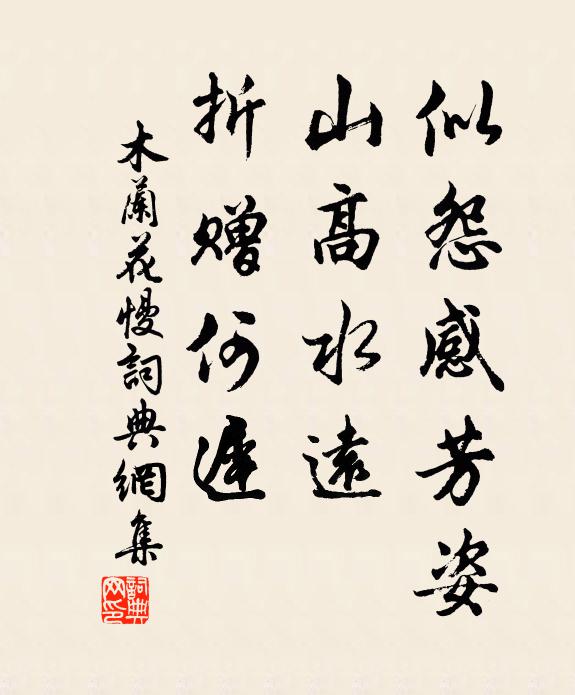 似怨感芳姿
山高水遠
折贈何遲
木蘭花慢詞典網集
詞典網印